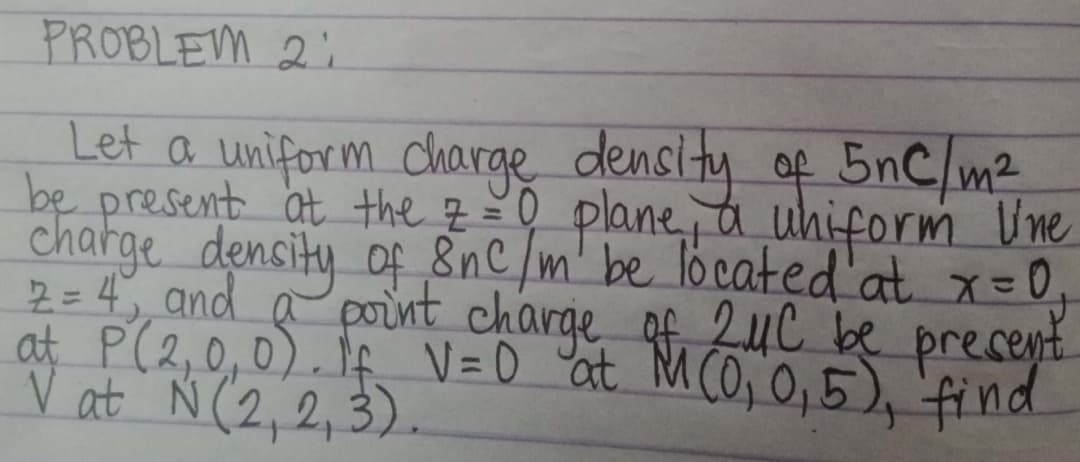 PROBLEM 2:
Let a uniform charge density of 5nC/m²
be present at the z=0 plane, a uniform line
charge density of 8nC/m be located at x=0,
z=4, and a point charge of 2μC be present
at P(2,0,0). If V=0 at M(0,0,5), find
V at N(2,2,3).